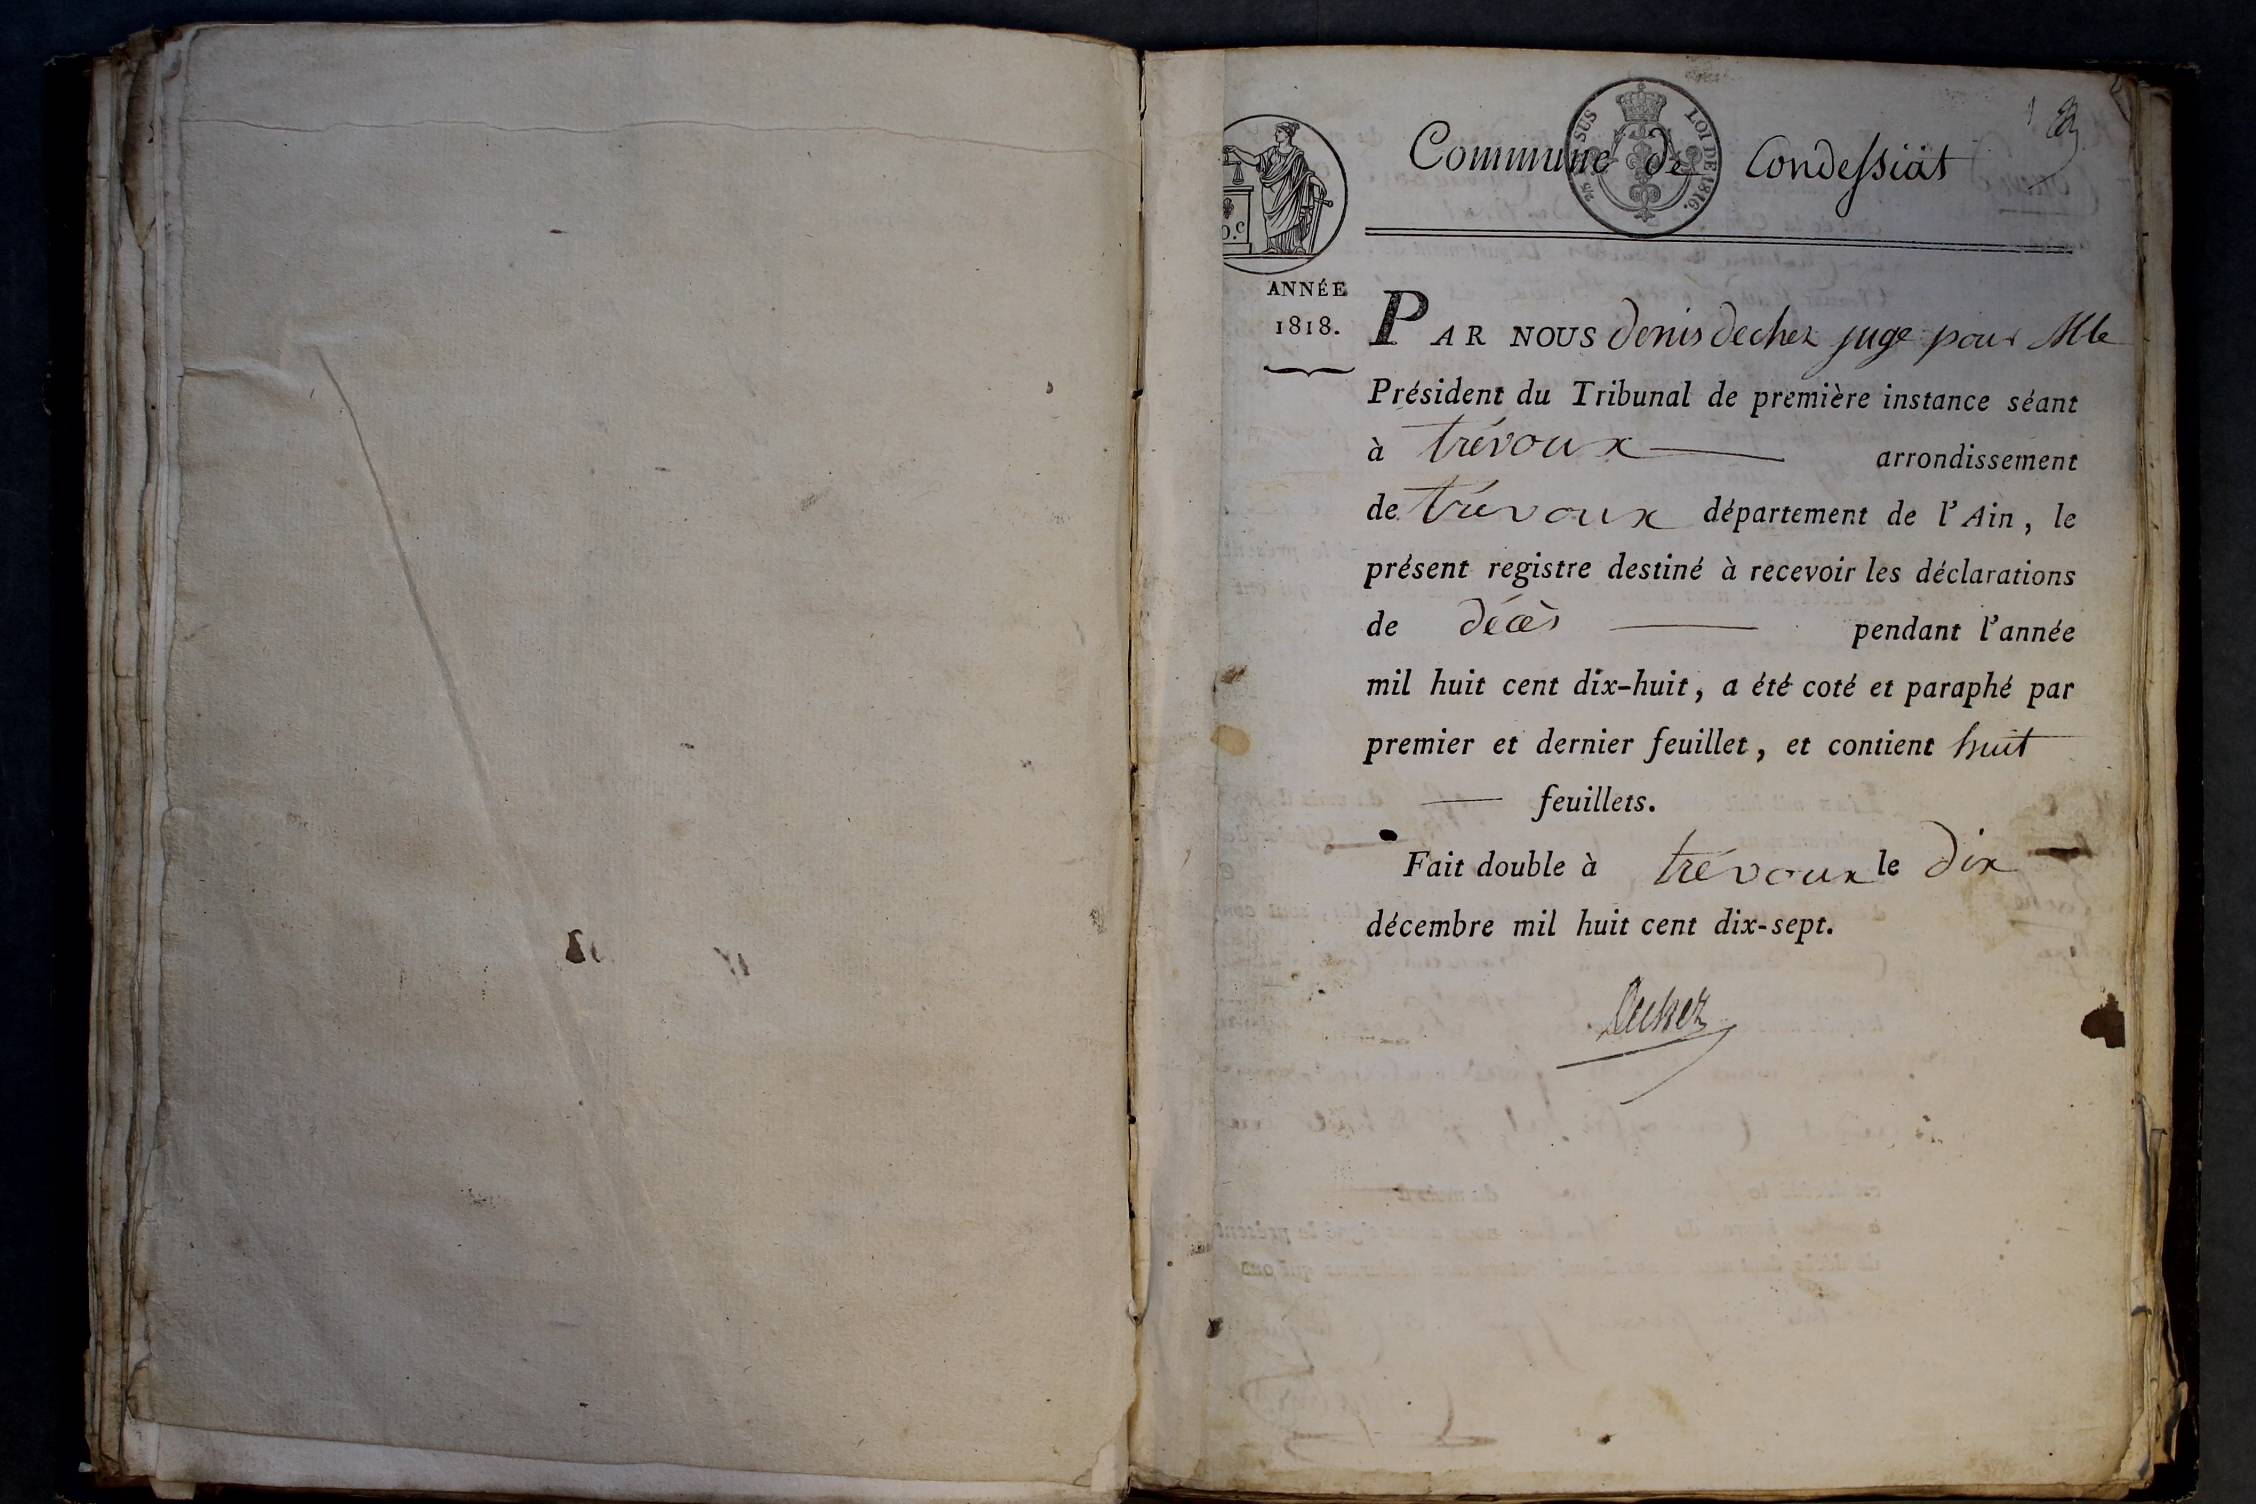 Commune de Condessiat
SUS LOI DE 1816.
ANNÉE
1818.
PAR NOUS denis dechez juge pour Mle
Président du Tribunal de première instance séant
à trévoux arrondissement
de trévoux département de l'Ain, le
présent registre destiné à recevoir les déclarations
de décès pendant l'année
mil huit cent dix-huit, a été coté et paraphé par
premier et dernier feuillet, et contient huit
feuillets.
Fait double à trévoux le dix
décembre mil huit cent dix-sept.
Dechez